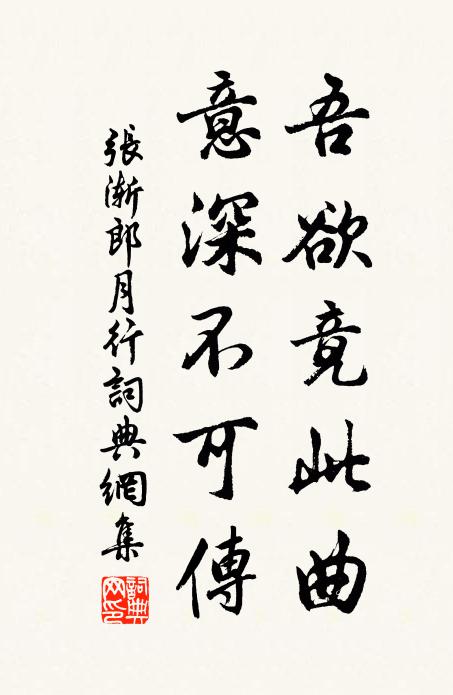 吾欲竟此曲
意深不可傳
張漸郎月行詞典網集
詞典
网印